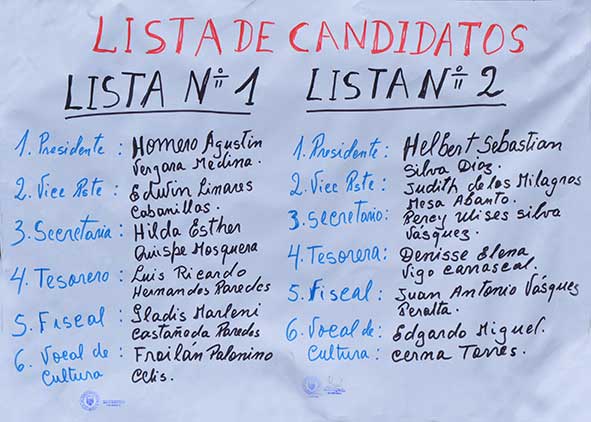 LISTA DE CANDIDATOS
LISTA Nº 1
1. Presidente : Homero Agustin
Vergara Medina.
2. Vice Pste : Edwin Linares
Cabanillas.
3. Secretaria : Hilda Esther
Quispe Mosquera
4. Tesorero : Luis Ricardo
Hernandos Paredes
5. Fiscal : Gladis Marleni
Castañoda Paredes
6. Vocal de : Froilán Palomino
Cultura
LISTA Nº 2
1. Presidente : Helbert Sebastian
Silva Diaz.
2. Vice Pste : Judith de los Milagros
Mesa Abanto.
3. Secretario : Percy Ulises Silva
Vásquez.
4. Tesorera : Denisse Elena
Vigo Carrascal.
5. Fiscal : Juan Antonio Vásquez
Peralta.
6. Vocal de : Edgardo Miguel.
Cultura : Cerna Torres.